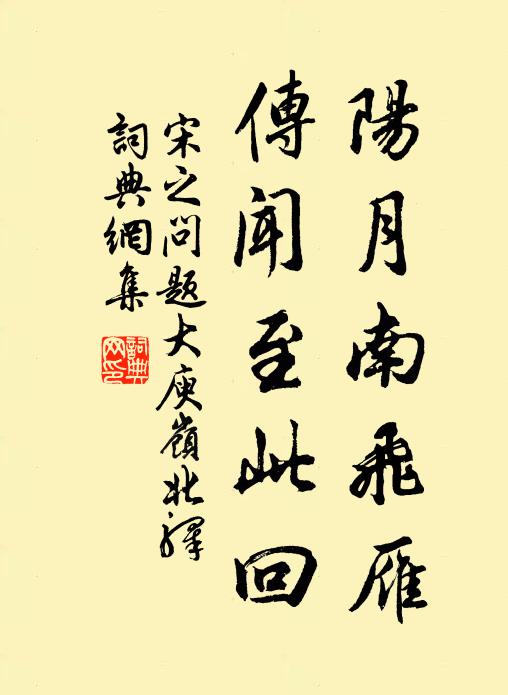 陽月南飛雁
傳聞至此回
宋之问题大庾嶺北驛
詞典網集
詞典
网印